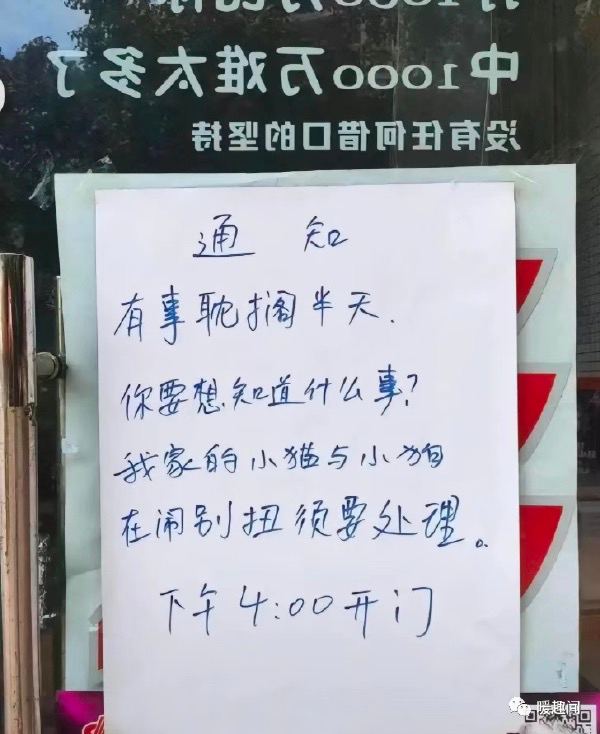 1000万比你
中1000万难太多了
没有任何借口的坚持
通 知
有事耽搁半天.
你要想知道什么事?
我家的小猫与小狗
在闹别扭须要处理。
下午4:00开门
暖趣闻